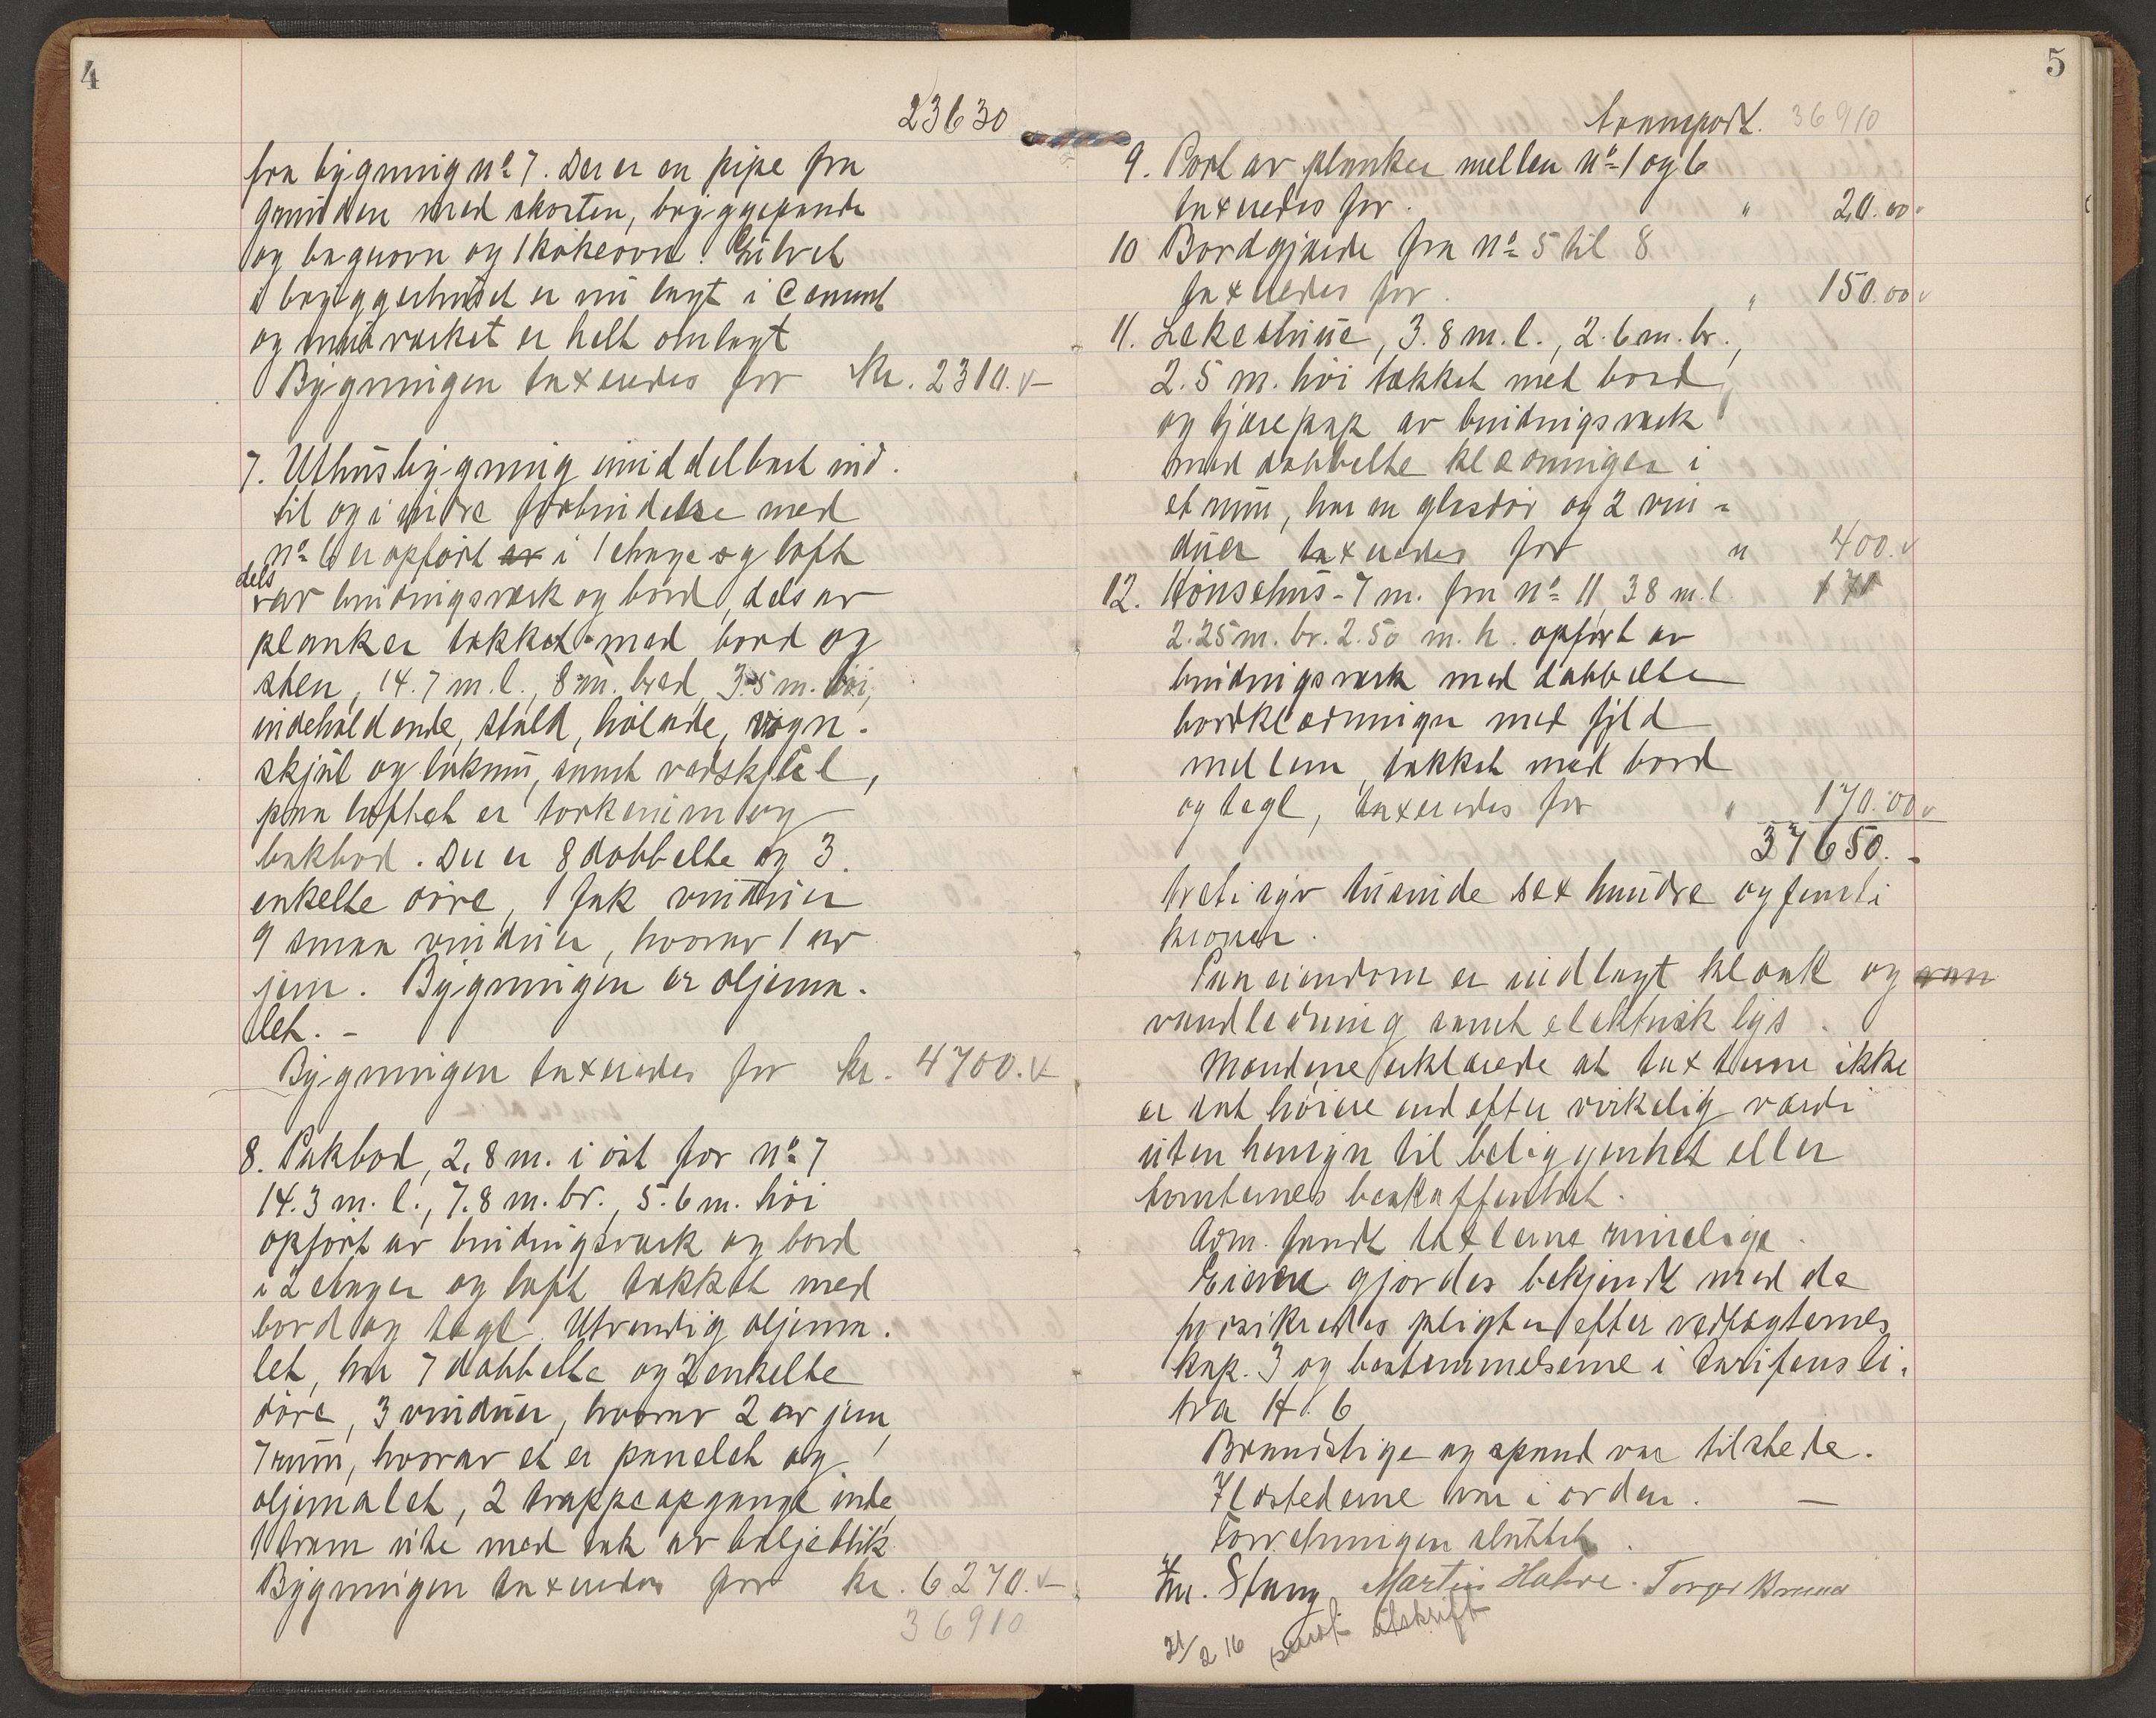 4
23630
fra bygning nº 7. Der er en pipe fra
grunden med skorsten, bryggepande
og bagerovn og 1 kokeovn. Gulvet
i bryggerhuset er nu lagt i Cement
og murverket er helt omlagt
Bygningen taxeredes for Kr. 2310.-
7. Uthusbygning umiddelbart ind-
til og i indre forbindelse med
nº 6 er opført i 1 etage og loft
dels
av bindingsverk og bord, dels av
planker tækket med bord og
sten, 14.7 m. l., 8 m. bred, 3.5 m. höi,
indeholdende, stald, hölade, vogn-
skjul og lokum, samt vedskjul,
paa loftet er törkerum og
bakbod. Der er 8 dobbelte og 3
enkelte döre, 1 fak vinduer
9 smaa vinduer, hvorav 1 av
jern. Bygningen er oljema-
let. -
Bygningen taxeredes for kr. 4700.-
8. Pakbod, 2.8 m. i öst for nº 7
14.3 m. l., 7.8 m. br., 5.6 m. höi
opfört av bindingsverk og bord
i 2 etager og loft tækket med
bord og tegl. Utvendig oljema-
let, har 7 dobbelte og 2 enkelte
döre, 3 vinduer, hvorav 2 av jern,
7 rum, hvorav et er panelet og
oljemalet, 2 trappeopgange inde,
1 tram ute med tak av bølgeblik
Bygningen taxeredes for kr. 6270.-
36910
5
transport. 36910
9. Port av planker mellem nº 1 og 6
taxeredes for " 20.00
10 Bordgjærde fra nº 5 til 8
taxeredes for " 150.00
11. Lekestue, 3.8 m. l., 2.6 m. br.,
2.5 m. höi tækket med bord
og tjærepap av bindingsverk
med dobbelte klædninger i
et rum, har en glasdör og 2 vin-
duer taxeredes for " 400.
12. Hönsehus - 7 m. fra nº 11, 3.8 m. l 170
2.25 m. br. 2.50 m. h. opført av
bindingsverk med dobbelte
bordklædninger med fyld
mellem, tækket med bord
og tegl, taxeredes for " 170.00
37650.-
treti syv tusinde sex hundre og femti
kroner.
Paa eiendom er indlagt kloak og van
vandledning samt elektrisk lys.
Mændene erklærede at taxterne ikke
er sat höiere end efter virkelig værdi
uten hensyn til beliggenhet eller
tomternes beskaffenhet.
Adm. fandt taxterne rimelige.
Eieren gjordes bekjendt med de
forsikredes pligter efter vedtægternes
kap. 3 og bestemmelserne i tarifens li-
tra H. 6
Brandstige og spand var tilstede.
Ildstederne var i orden. -
Forretningen sluttet.
Stang Martin Halvre. Torger Bruun
21/2 16 sendt utskrift